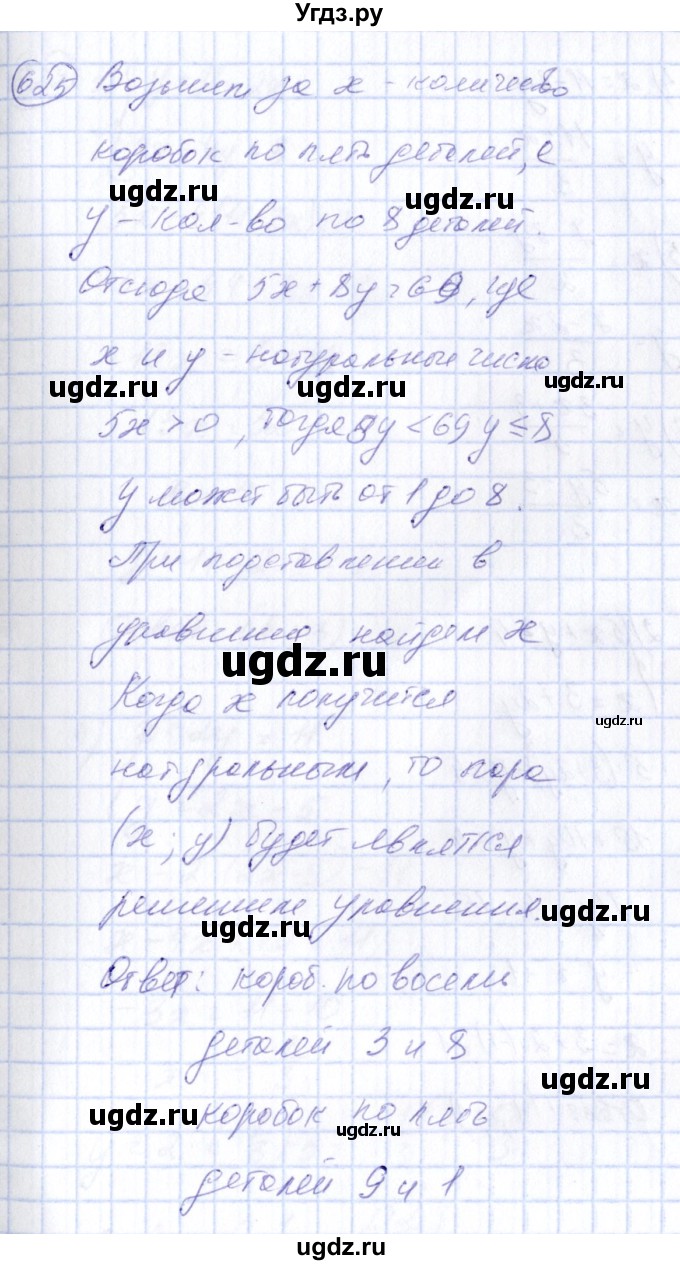 Угдз.ру
625 Возьмем за x - количество
коробок по пять деталей, а
ugdz.ru ugdz.ru
y - кол-во по 8 деталей.
Отсюда 5x + 8y = 69, где
x и y - натуральные числа
ugdz.ru ugdz.ru ugdz.ru
5x > 0, тогда 8y < 69 y ≤ 8
y может быть от 1 до 8.
При подставлении в
уравнение найдем x.
ugdz.ru
Когда x получится
ugdz.ru
натуральным, то пара
(x; y) будет являться
решением уравнения.
ugdz.ru ugdz.ru
Ответ: короб. по восемь
деталей 3 и 8
ugdz.ru
коробок по пять
ugdz.ru ugdz.ru
деталей 9 и 1
ugdz.ru